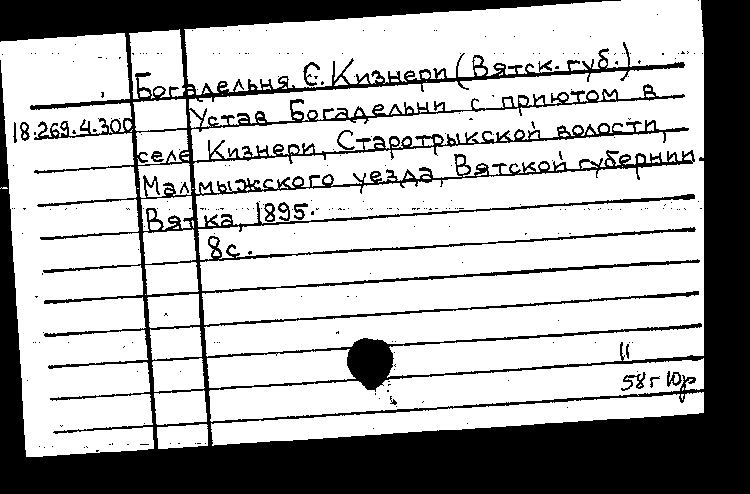 Богадельня. С. Кизнери (Вятск. губ.).
18.269.4.300
Устав Богадельни с приютом в
селе Кизнери, Старотрыкской волости,
Малмыжского уезда, Вятской губернии.
Вятка, 1895.
8с.
11
58г Юр